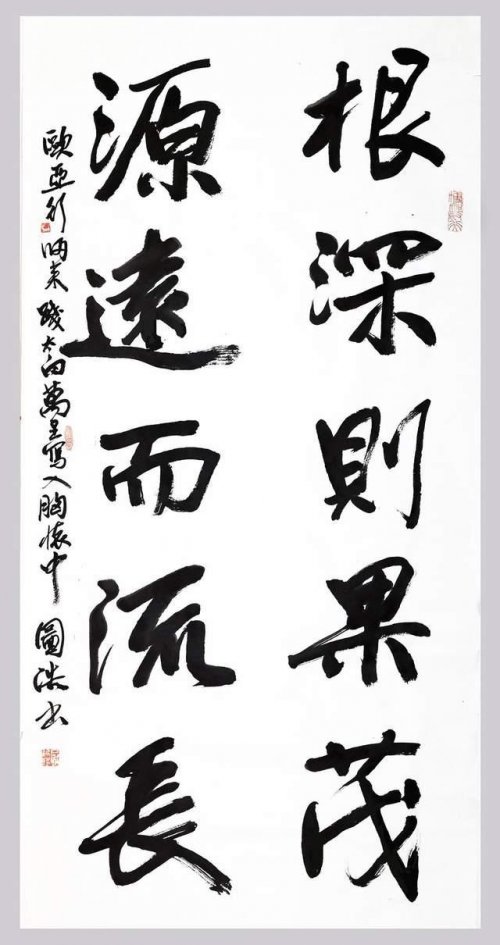 根深則果茂
源遠而流長
歐亞行歸來踐太白萬里寫入胸懷中 圖 書